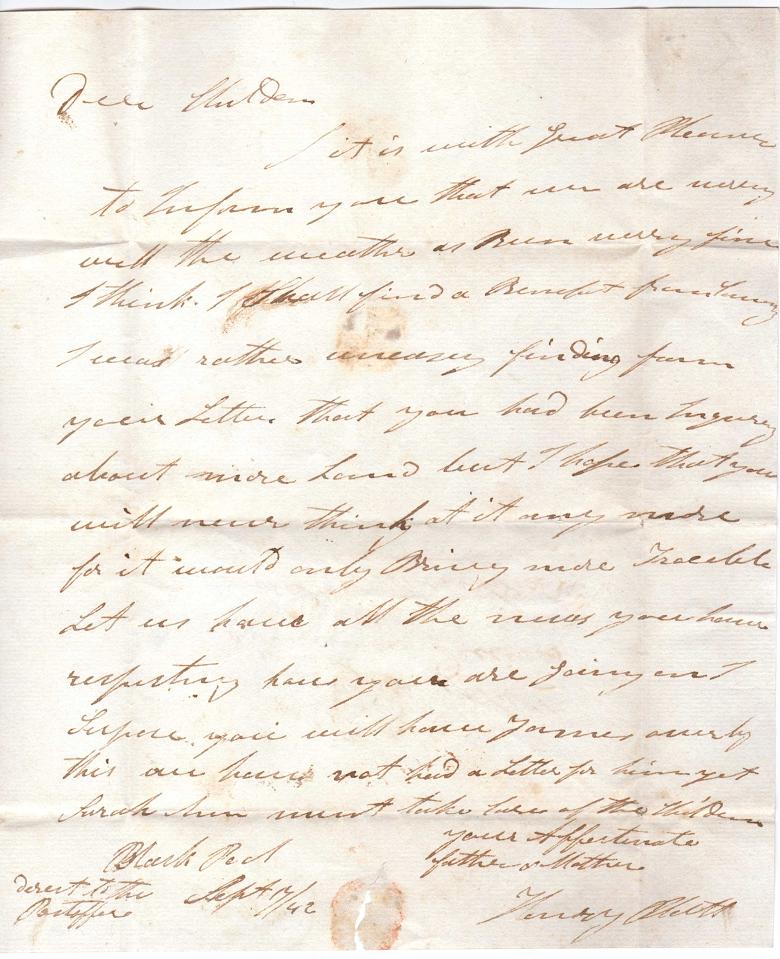 Deer Children
it is with Great Pleasure
to Inform you that we are verry
well the weather as Bean verry fine
I think I Shall find a Benefet from
I was rather uneasey finding from
your Letter that you had been Inquiry
about more Land but I hope that you
will never think at it any more
for it would only Bring more Trouble
Let us have all the news you have
respecting how you are Going on I
Supose you will have James over by
this we have not had a Letter for him yet
Sarah Ann must take care of the Children
your Affectinate
father & Mother
Black Pool
Sept 17/42
derect to the
Postoffice
Henry